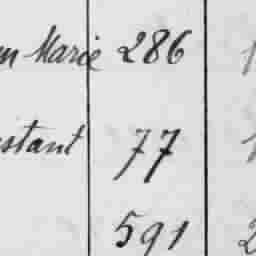 Marie 286 1
stant 77 1
591 2